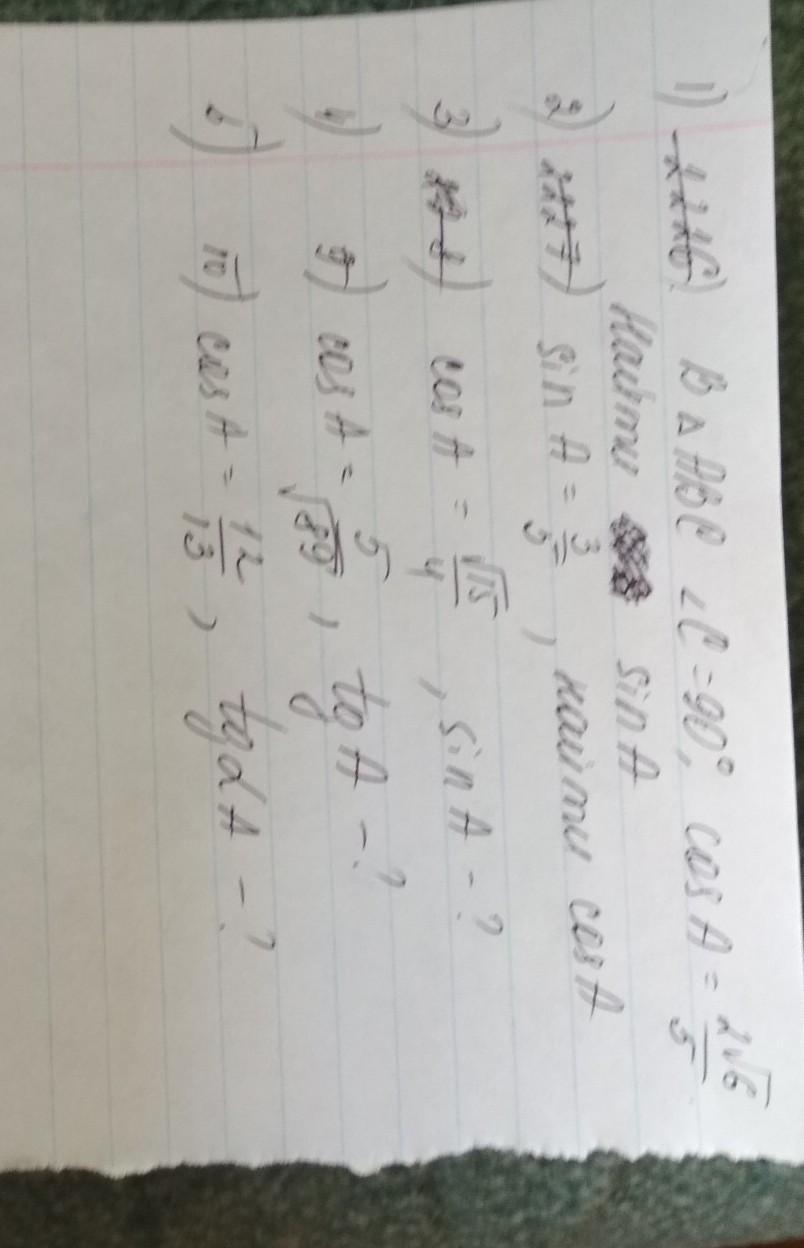 1) В △ ABC ∠C = 90°, cos A = 2√6/5
Найти sin A
2) sin A = 3/5, найти cos A
3) cos A = √15/4, sin A - ?
4) cos A = 5/√89, tg A - ?
5) 10) cos A = 12/13, tg ∠A - ?